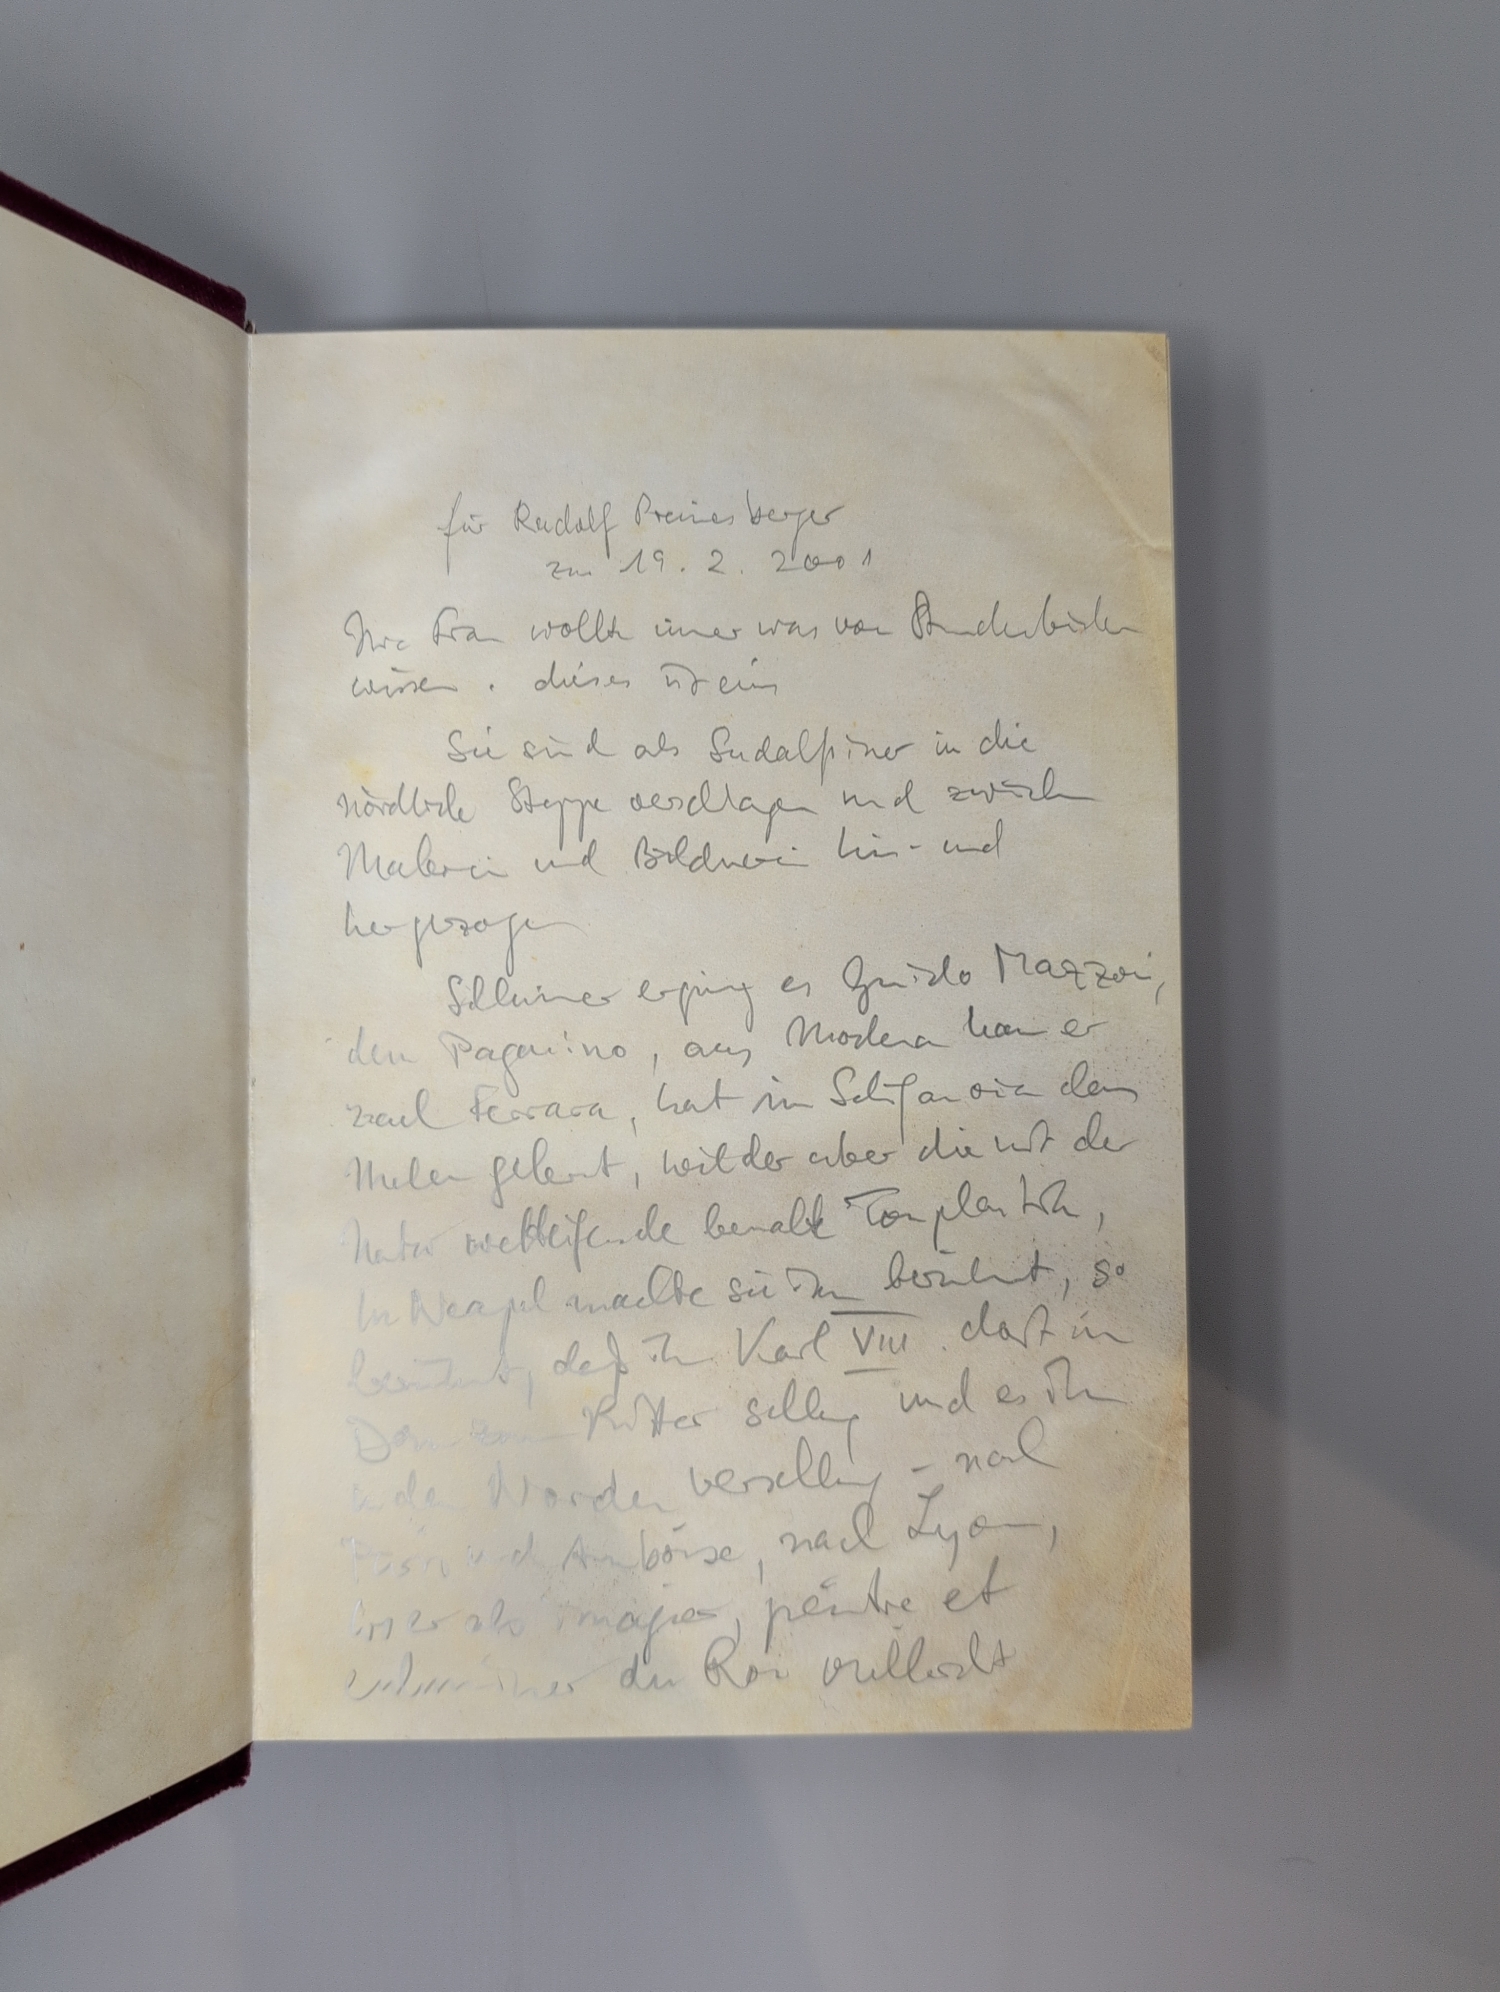 für Rudolf Preimesberger
zum 19. 2. 2001
Ihre Frau wollte immer was von Stundenbüchern
wissen. dieses ist eins
Sie sind als Südalpiner in die
nördliche Steppe verschlagen und zwischen
Malerei und Bildnerei hin- und
hergezogen
Schlimmer erging es Guido Mazzoni,
dem Paganino, aus Modena kam er
nach Ferrara, hat in Schifanoia das
Malen gelernt, mit der Natur wetteifernde bemalte Tonplastik,
in Neapel machte sie ihn berühmt, so
berühmt, daß ihn Karl VIII. dort im
Dom zum Ritter schlug und es ihn
in den Norden verschlug – nach
Tours und Amboise, nach Lyon,
wo er als imagier, peintre et
enlumineur du Roi vielleicht